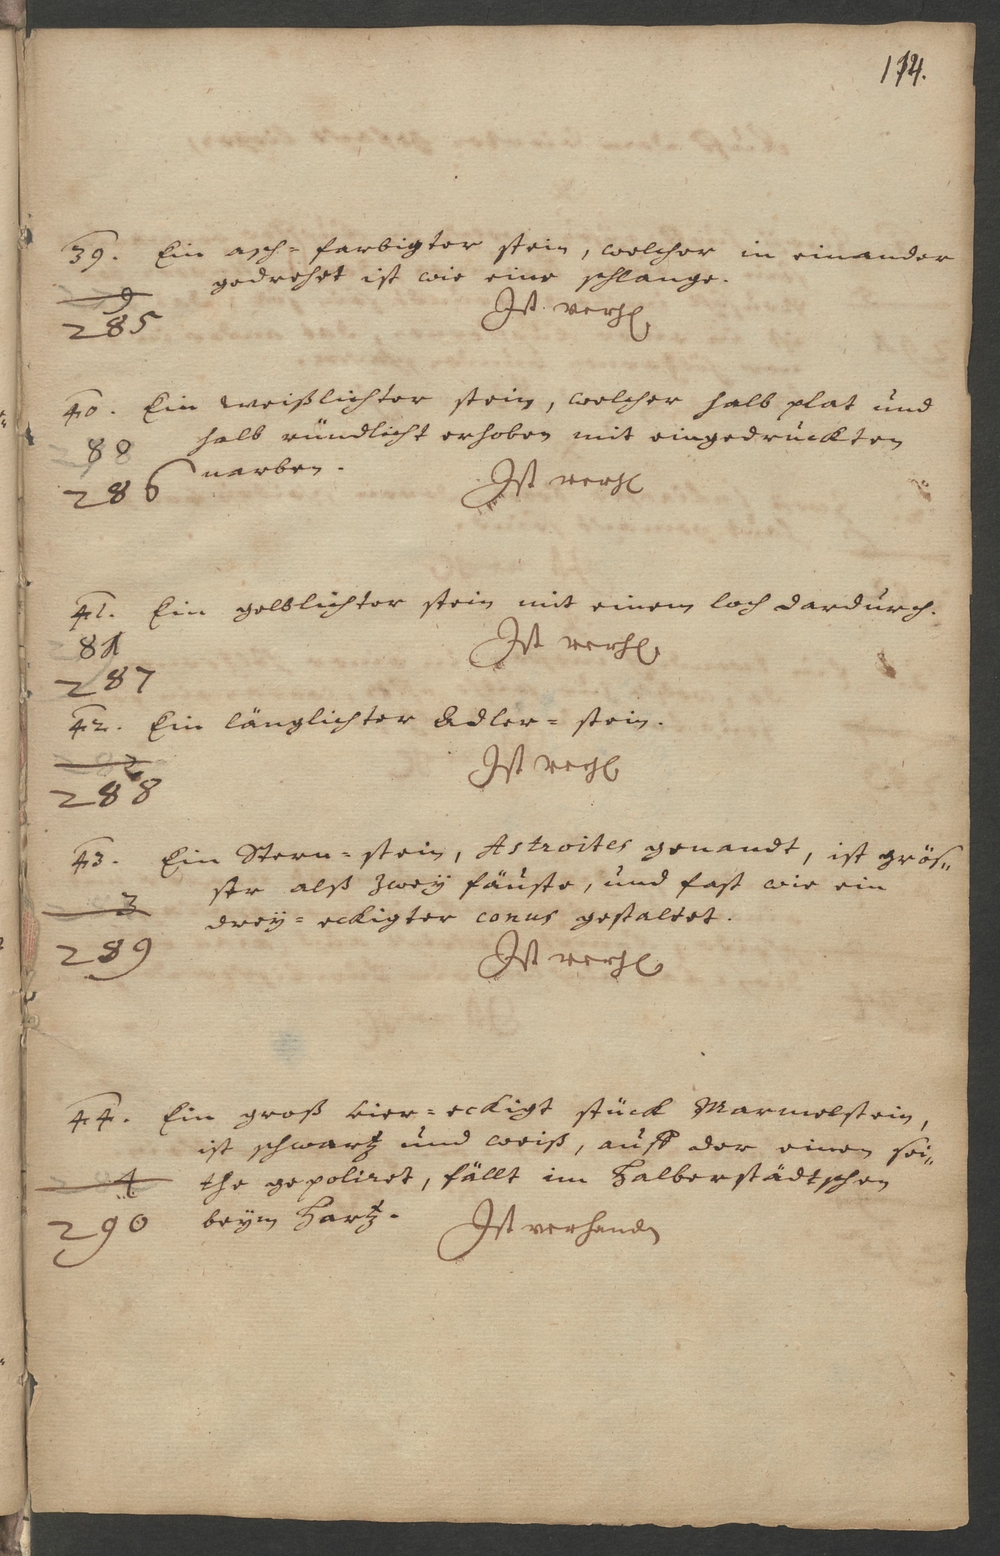 174.
39. Ein asch= farbigter stein, welcher in einander
gedrehet ist wie eine schlange.
285
Ist verh
40. Ein weißlichter stein, welcher halb plat und
88
halb ründlicht erhoben mit eingedruckten
286
narben.
Ist verh
41. Ein gelblichter stein mit einem loch dardurch.
Ist verh
287
42. Ein länglichter Adler= stein.
Ist verh
288
43. Ein Stern= stein, Astroites genandt, ist grös„
ser alß zweÿ fäuste, und fast wie ein
3
dreÿ= eckigter conus gestaltet.
289
Ist verh
44. Ein groß vier= eckigt stück Marmelstein,
ist schwartz und weiß, auff der einen sei„
4
the gepoliret, fällt im Halberstädtschen
290
beÿm Hartz.
Ist verhandn